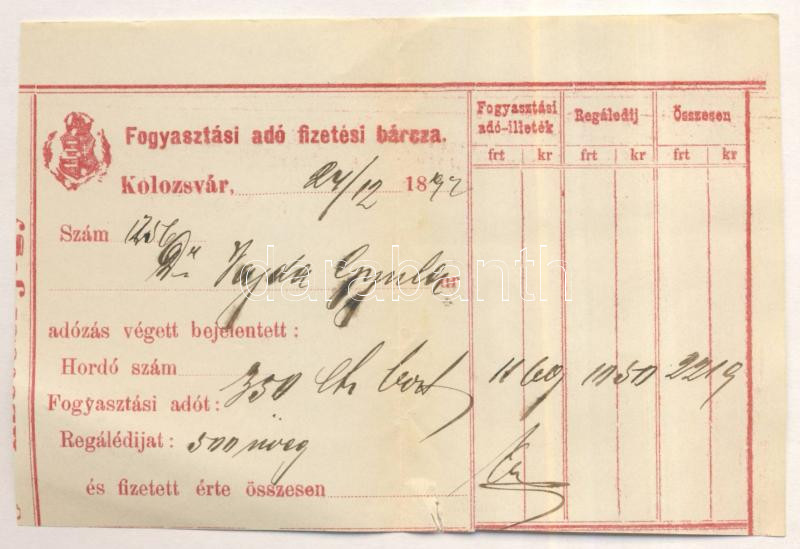 Fogyasztási adó-illeték Regáledij Összesen
frt kr frt kr frt kr
Fogyasztási adó fizetési bárcza.
Kolozsvár, 24/12 1892
Szám 1256
Dr Vajda Gyula úr
darabanth
adózás végett bejelentett:
Hordó szám
350 ltr bort 11 69 10 50 22 19
Fogyasztási adót:
Regálédijat: 500 üveg
és fizetett érte összesen